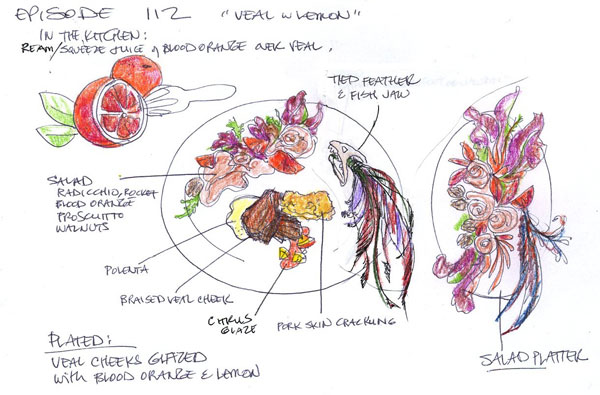 EPISODE 112 "VEAL W LEMON"
IN THE KITCHEN:
REAM/SQUEEZE JUICE of BLOOD ORANGE OVER VEAL.
TIED FEATHER
& FISH JAW
SALAD
RADICCHIO, ROCKET
BLOOD ORANGE
PROSCIUTTO
WALNUTS
POLENTA
BRAISED VEAL CHEEK
CITRUS
GLAZE
PORK SKIN CRACKLING
PLATED:
VEAL CHEEKS GLAZED
with BLOOD ORANGE & LEMON
SALAD PLATTER